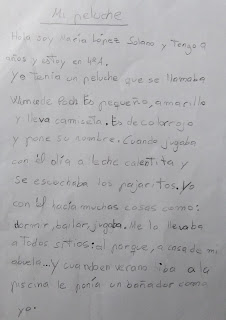 Mi peluche
Hola soy María López Solano y Tengo 9
años y estoy en 4ºA.
Yo Tenía un peluche que se llamaba
Es pequeño, amarillo
y lleva camiseta. Es de color rojo
y pone su nombre. Cuando jugaba
con él olía a leche calentita y
se escuchaba los pajaritos. Yo
con él hacía muchas cosas como:
dormir, bailar, jugaba. Me lo llevaba
a Todos sitios: al parque, a casa de mi
abuela... Y cuando en verano iba a la
piscina le ponía un bañador como
yo.